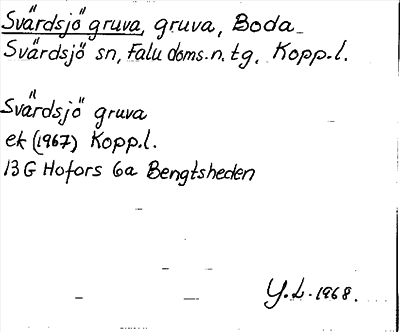 Svärdsjö gruva, gruva, Boda
Svärdsjö sn, Falu doms.n.tg, Kopp.l.
Svärdsjö gruva
ek (1967) Kopp.l.
13 G Hofors 6a Bengtsheden
Y.L. 1968.